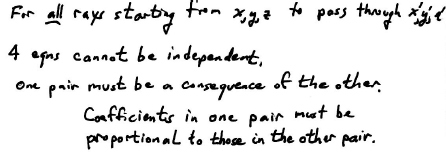 For all rays starting from x,y,z to pass through x',y',z'
4 eqns cannot be independent,
one pair must be a consequence of the other.
Coefficients in one pair must be
proportional to those in the other pair.